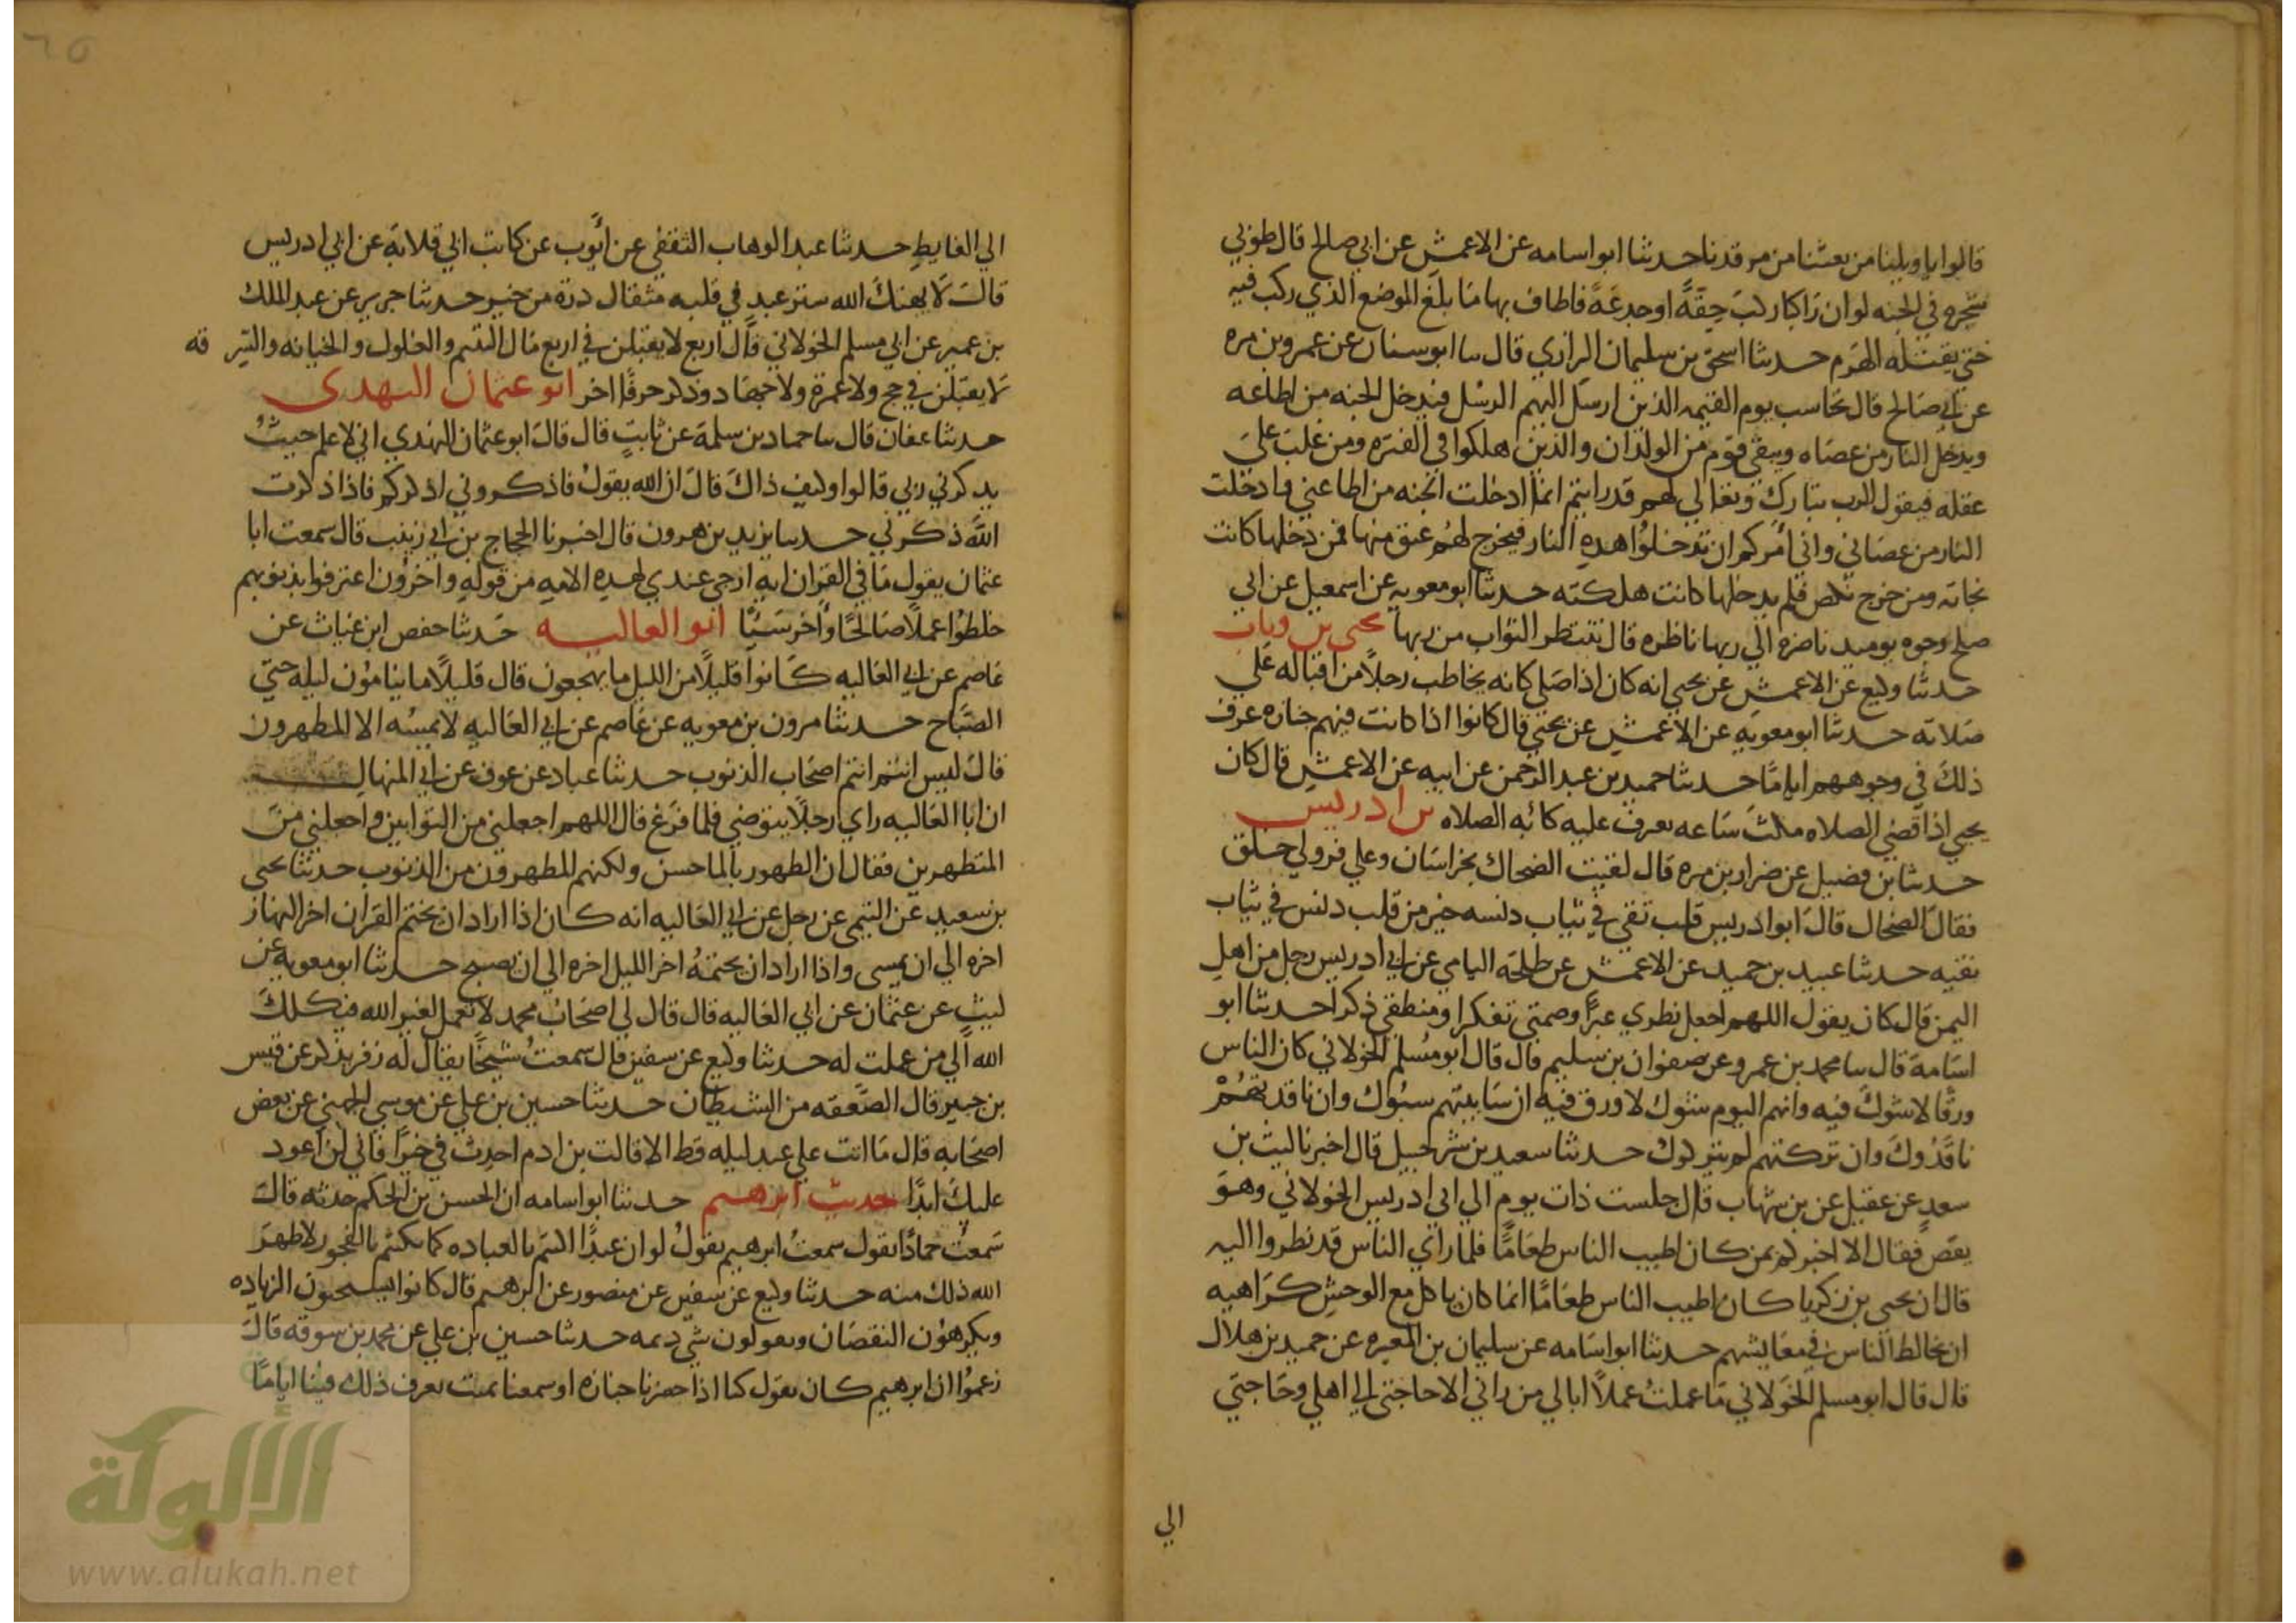 قالوا يا ويلنا من بعثنا من مرقدنا حدثنا ابو اسامه عن الاعمش عن ابي صالح قال طوبي
شجره في الجنه لو ان راكبا ركب حقة او جدعة فاطاف بها ما بلغ الموضع الذي ركب فيه
حتي يقتله الهرم حدثنا اسحق بن سليمان الرازي قال سا ابو سنان عن عمرو بن مره
عن ابي صالح قال يحاسب يوم القيمه الذين ارسل اليهم الرسل فيدخل الجنه من اطاعه
ويدخل النار من عصاه ويبقي قوم من الولدان والذين هلكوا في الفتره ومن غلب علي
عقله فيقول الرب تبارك وتعالي لهم قد رايتم انما ادخلت الجنه من اطاعني وادخلت
النار من عصاني واني امركم ان تدخلوا هذه النار فيخرج لهم عنق منها فمن دخلها كانت
نجاته ومن خرج نكص فلم يدخلها كانت هلكته حدثنا ابو معويه عن اسمعيل عن ابي
صلح وجوه يوميذ ناضره الي ربها ناظره قال تنتظر الثواب من ربها يحيي بن وثاب
حدثنا وكيع عن الاعمش عن يحيي انه كان اذا صلي كانه يخاطب رجلا من اقباله علي
صلاته حدثنا ابو معويه عن الاعمش عن يحيي قال كانوا اذا كانت فيهم جنازه عرف
ذلك في وجوههم اياما حدثنا حميد بن عبد الرحمن عن ابيه عن الاعمش قال كان
يحيي اذا قضي الصلاه مكث ساعه تعرف عليه كائبه الصلاه بن ادريس
حدثنا بن فضيل عن ضرار بن مره قال لقيت الضحاك بخراسان وعلي فرو لي خلق
فقال الضحاك قال ابو ادريس قلب نقي في ثياب دنسه خير من قلب دنس في ثياب
نقيه حدثنا عبيد بن حميد عن الاعمش عن طلحة اليامي عن ابي ادريس رجل من اهل
اليمن قال كان يقول اللهم اجعل نظري عبرا وصمتي تفكرا ومنطقي ذكرا حدثنا ابو
اسامة قال سا محمد بن عمرو عن صفوان بن سليم قال قال ابو مسلم الخولاني كان الناس
ورقا لا شوك فيه وانهم اليوم شوك لا ورق فيه ان ساببتهم سبوك وان ناقدتهم
ناقدوك وان تركتهم لم يتركوك حدثنا سعيد بن شرحبيل قال اخبرنا ليث بن
سعد عن عقيل عن بن شهاب قال جلست ذات يوم الي ابي ادريس الخولاني وهو
يقص فقال الا اخبركم بمن كان اطيب الناس طعاما فلما راي الناس قد نظروا اليه
قال ان يحيي بن زكريا كان اطيب الناس طعاما انما كان ياكل مع الوحش كراهيه
ان يخالط الناس في معايشهم حدثنا ابو اسامه عن سليمان بن المغيره عن حميد بن هلال
قال قال ابو مسلم الخولاني ما عملت عملا ابالي من راني الا حاجتي الي اهلي وحاجتي
الي
٦٥
الي الغايط حدثنا عبد الوهاب الثقفي عن أيوب عن كاتب ابي قلابة عن ابي ادريس
قال لا يهتك الله ستر عبد في قلبه مثقال ذرة من خير حدثنا جرير عن عبد الملك
بن عمير عن ابي مسلم الخولاني قال اربع لا يقبلن في اربع مال اليتيم والغلول والخيانه والسرقه
لا يقبلن في حج ولا عمرة ولا جهاد وذكر حرفا اخر ابو عثمان النهدي
حدثنا عفان قال سا حماد بن سلمة عن ثابت قال قال ابو عثمان النهدي اني لاعلم حيث
يذكرني ربي قالوا وكيف ذاك قال ان الله يقول فاذكروني اذكركم فاذا ذكرت
الله ذكرني حدثنا يزيد بن هرون قال اخبرنا الحجاج بن ابي زينب قال سمعت ابا
عثمان يقول ما في القران ايه ارجي عندي لهذه الامه من قوله واخرون اعترفوا بذنوبهم
خلطوا عملا صالحا وأخر سيئا ابو العاليه حدثنا حفص ابن غياث عن
عاصم عن ابي العاليه كانوا قليلا من الليل ما يهجعون قال قليلا ما ينامون ليله حتي
الصباح حدثنا مرون بن معويه عن عاصم عن ابي العاليه لا يمسه الا المطهرون
قال ليس انتم انتم اصحاب الذنوب حدثنا عباد عن عوف عن ابي المنهال
ان ابا العاليه راي رجلا يتوضي فلما فرغ قال اللهم اجعلني من التوابين واجعلني من
المتطهرين فقال ان الطهور بالما حسن ولكنهم المطهرون من الذنوب حدثنا يحيي
بن سعيد عن التيمي عن رجل عن ابي العاليه انه كان اذا اراد ان يختم القران اخر النهار
اخره الي ان يمسي واذا اراد ان يختمه اخر الليل اخره الي ان يصبح حدثنا ابو معويه عن
ليث عن عثمان عن ابي العاليه قال قال لي اصحاب محمد لا تعمل لغير الله فيكلك
الله الي من عملت له حدثنا وكيع عن سفين قال سمعت شيخا يقال له زفر يذكر عن قيس
بن حبتر قال الصعقه من الشيطان حدثنا حسين بن علي عن موسي الجهني عن بعض
اصحابه قال ما اتت علي عبد ليله قط الا قالت بن ادم احدث في خيرا فاني لن اعود
عليك ابدا حديث ابرهيم حدثنا ابو اسامه ان الحسن بن الحكم حدثه قال
سمعت حمادا يقول سمعت ابرهيم يقول لو ان عبدا اكتتم بالعباده كما يكتتم بالفجور لاظهر
الله ذلك منه حدثنا وكيع عن سفين عن منصور عن ابرهيم قال كانوا يستحبون الزياده
ويكرهون النقصان ويقولون شي ديمه حدثنا حسين بن علي عن محمد بن سوقه قال
زعموا ان ابرهيم كان يقول كنا اذا حضرنا جنازه او سمعنا بميت يعرف ذلك فينا اياما
الألوكة
www.alukah.net